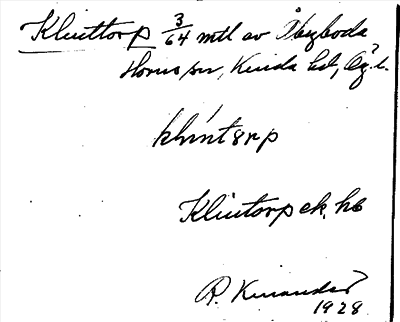 Klinttorp 3/64 mtl av Åbyboda
Horns sn, Kinda hd, Ög. l.
klintørp
Klintorp ek. kb
R. Kinander
1928